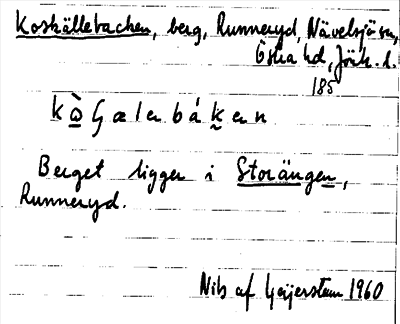 Koskällebacken, berg, Runneryd, Nävelsjö sn,
Östra hd, Jönk. l.
185
kò̠ȿælerbákern
Berget ligger i Storängen,
Runneryd.
Nils af Geijerstam 1960